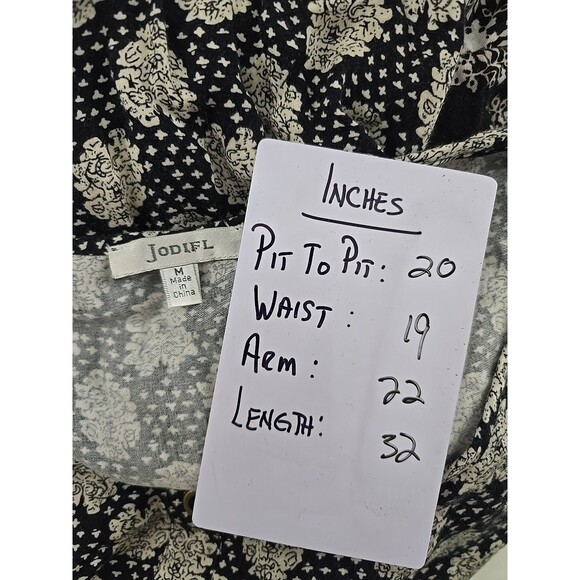 JODIFL
M
Made
in
China
INCHES
PIT TO PIT: 20
WAIST: 19
ARM: 22
LENGTH: 32